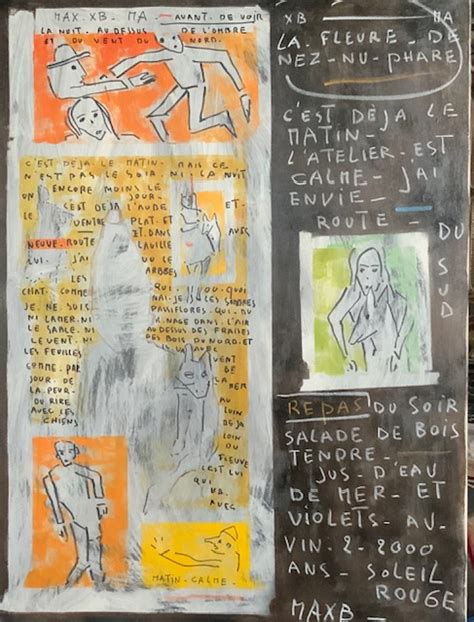 MAX. XB - MA - AVANT. DE VOIR
LA NUIT. AU. DESSUS DE L'OMBRE
ET DU VENT DU NORD.
C'EST DEJA LE MATIN- MAIS CE
N'EST PAS LE SOIR NI LA NUIT
ENCORE MOINS LE
JOUR-
C'EST DEJA L'AUDE ET-
VENTRE PLAT. ET AVEC
NEUVE. ROUTE ET. DANS
LAVILLE
LUI. J'AI OU LE
LES ARBRES
CHAT. COMME QUI- OU. QUOI
JE. NE SUIS NAI. JE. LES SOMBRES
NI LA MER. NI PASSIFLORES. QUI. DU
LE SABLE. NI NAGE DANS L'AIR
LE VENT. NI AU DESSUS DES FRAISES
LES FEUILLES DES BOIS DU NORD. ET
COMME. PAR VENT
JOUR. DE DE
LA PEUR- LA MER
DU RIRE AU
AVEC LES LOIN
CHIENS DEJA
LOIN
OU
FLEUVE
C'EST LUI
QUI
VA.
AVEC
MATIN-CALME-
XB MA
LA FLEURE - DE
NEZ-NU-PHARE
C'EST DEJA LE
MATIN-
L'ATELIER-EST
CALME- J'AI
ENVIE-
ROUTE - DU
SUD
REPAS DU SOIR
SALADE DE BOIS
TENDRE-
JUS-D'EAU
DE MER- ET
VIOLETS- AU-
VIN-2-2000
ANS- SOLEIL
ROUGE
MAXB-